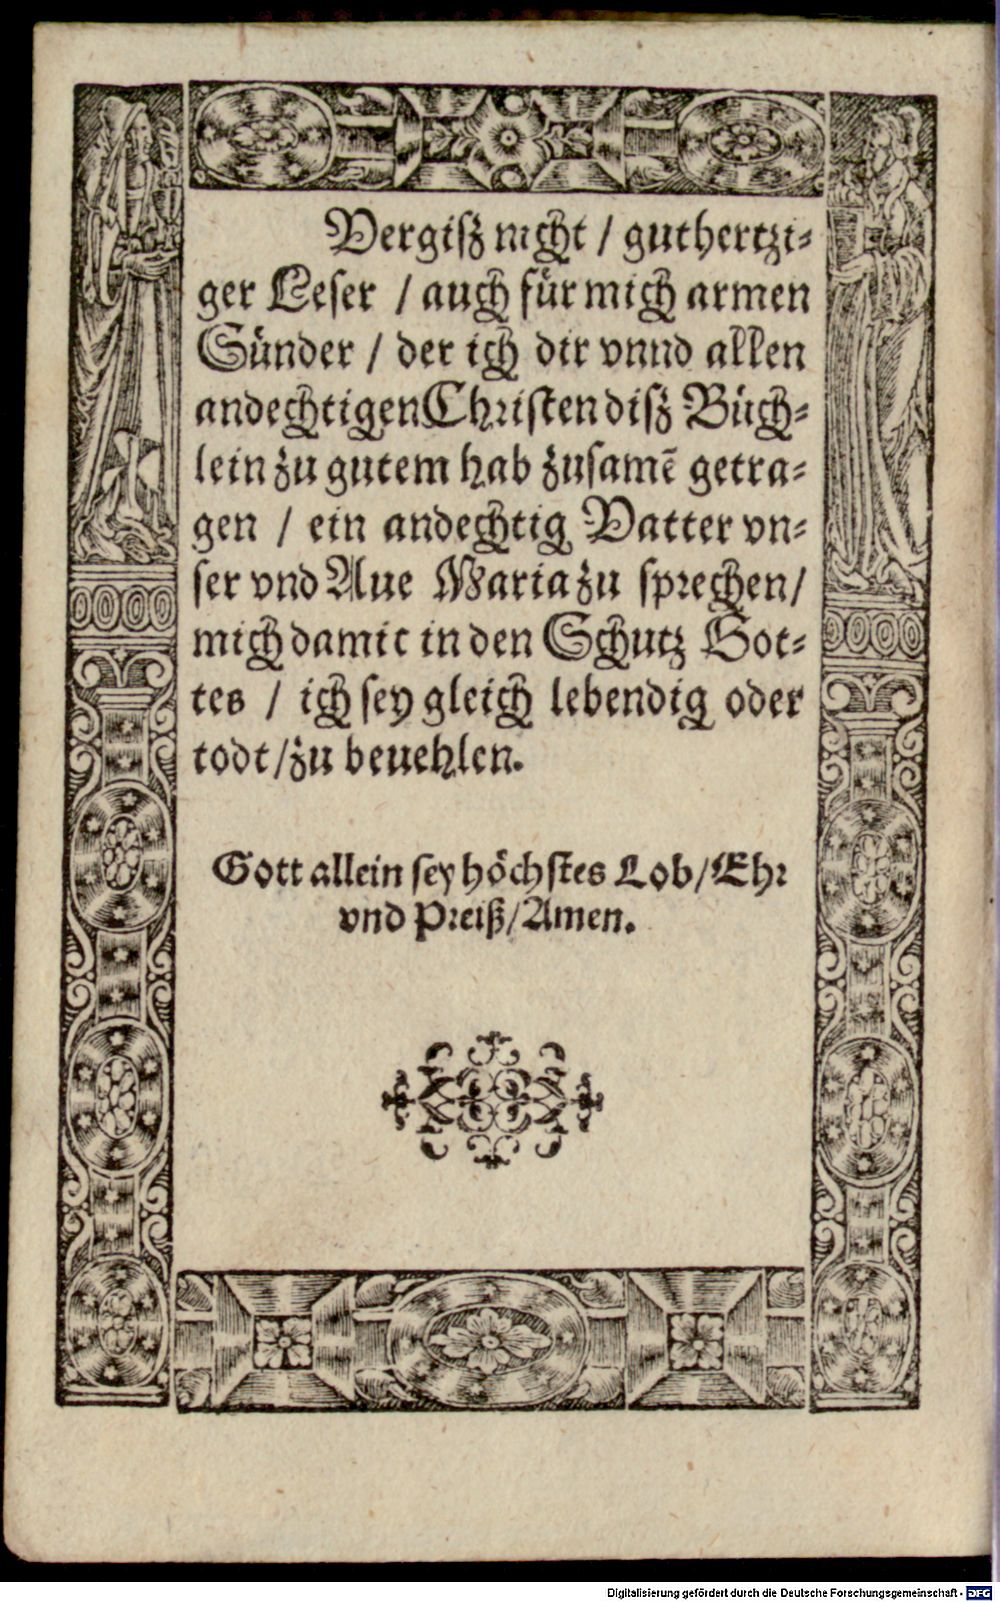 Vergisz nicht / guthertzi⸗
ger Leser / auch für mich armen
Sünder / der ich dir vnnd allen
andechtigen Christen disz Büch⸗
lein zu gutem hab zusamē getra⸗
gen / ein andechtig Vatter vn⸗
ser vnd Aue Maria zu sprechen/
mich damit in den Schutz Got⸗
tes / ich sey gleich lebendig oder
todt/zu beuehlen.
Gott allein sey höchstes Lob/Ehr
vnd Preiß/Amen.
Digitalisierung gefördert durch die Deutsche Forschungsgemeinschaft - DFG